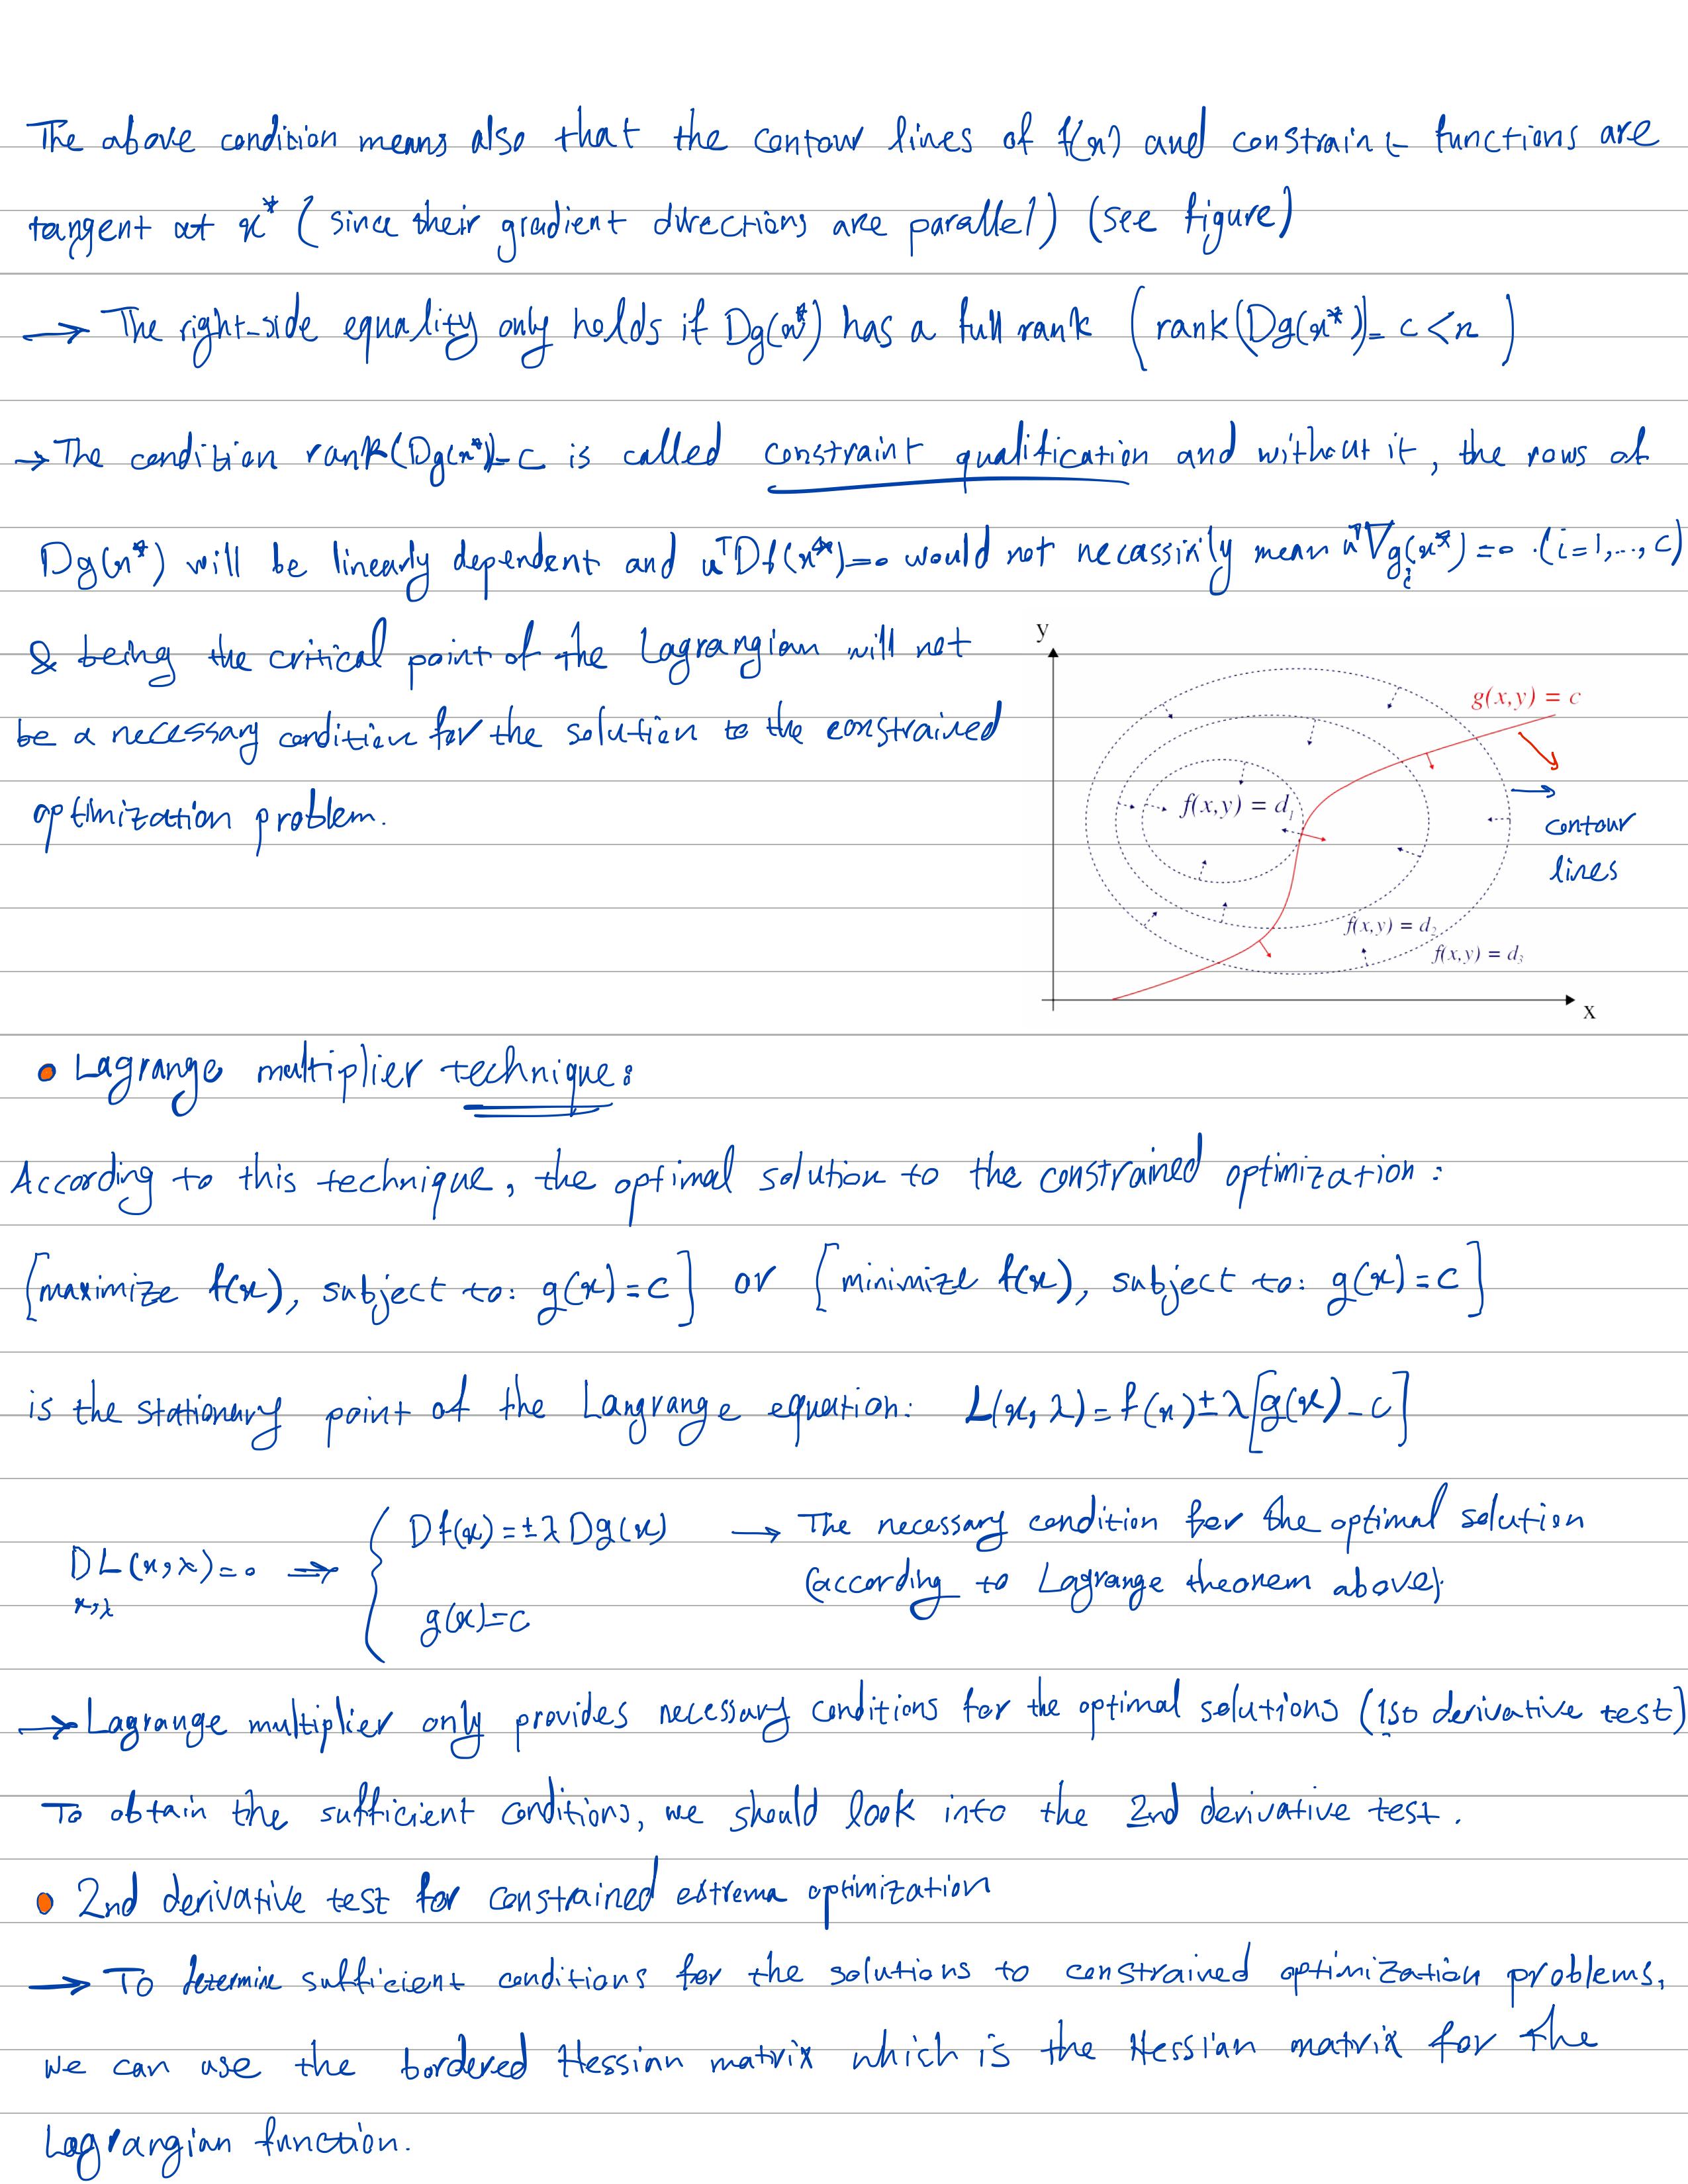 The above condition means also that the contour lines of f(x) and constraint functions are
tangent at x* (since their gradient directions are parallel) (see figure)
→ The right-side equality only holds if Dg(x*) has a full rank (rank(Dg(x*))=c<n)
→ The condition rank(Dg(x*))=c is called constraint qualification and without it, the rows of
Dg(x*) will be linearly dependent and uᵀDf(x*)=0 would not necassirily mean uᵀ∇gᵢ(x*)=0 .(i=1,...,c)
& being the critical point of the Lagrangian will not
be a necessary condition for the solution to the constrained
optimization problem.
y
g(x,y) = c
f(x,y) = d₁
contour
lines
f(x,y) = d₂
f(x,y) = d₃
x
• Lagrange multiplier technique:
According to this technique, the optimal solution to the constrained optimization:
[maximize f(x), subject to: g(x)=c] or [minimize f(x), subject to: g(x)=c]
is the stationary point of the Langrange equation: L(x,λ)=f(x)±λ[g(x)-c]
DL(x,λ)=0 ⇒ { Df(x)=±λDg(x) → The necessary condition for the optimal solution
x,λ
(according to Lagrange theorem above).
g(x)=c
→ Lagrange multiplier only provides necessary conditions for the optimal solutions (1st derivative test)
To obtain the sufficient conditions, we should look into the 2nd derivative test.
• 2nd derivative test for constrained extrema optimization
→ To determine sufficient conditions for the solutions to constrained optimization problems,
we can use the bordered Hessian matrix which is the Hessian matrix for the
Lagrangian function.